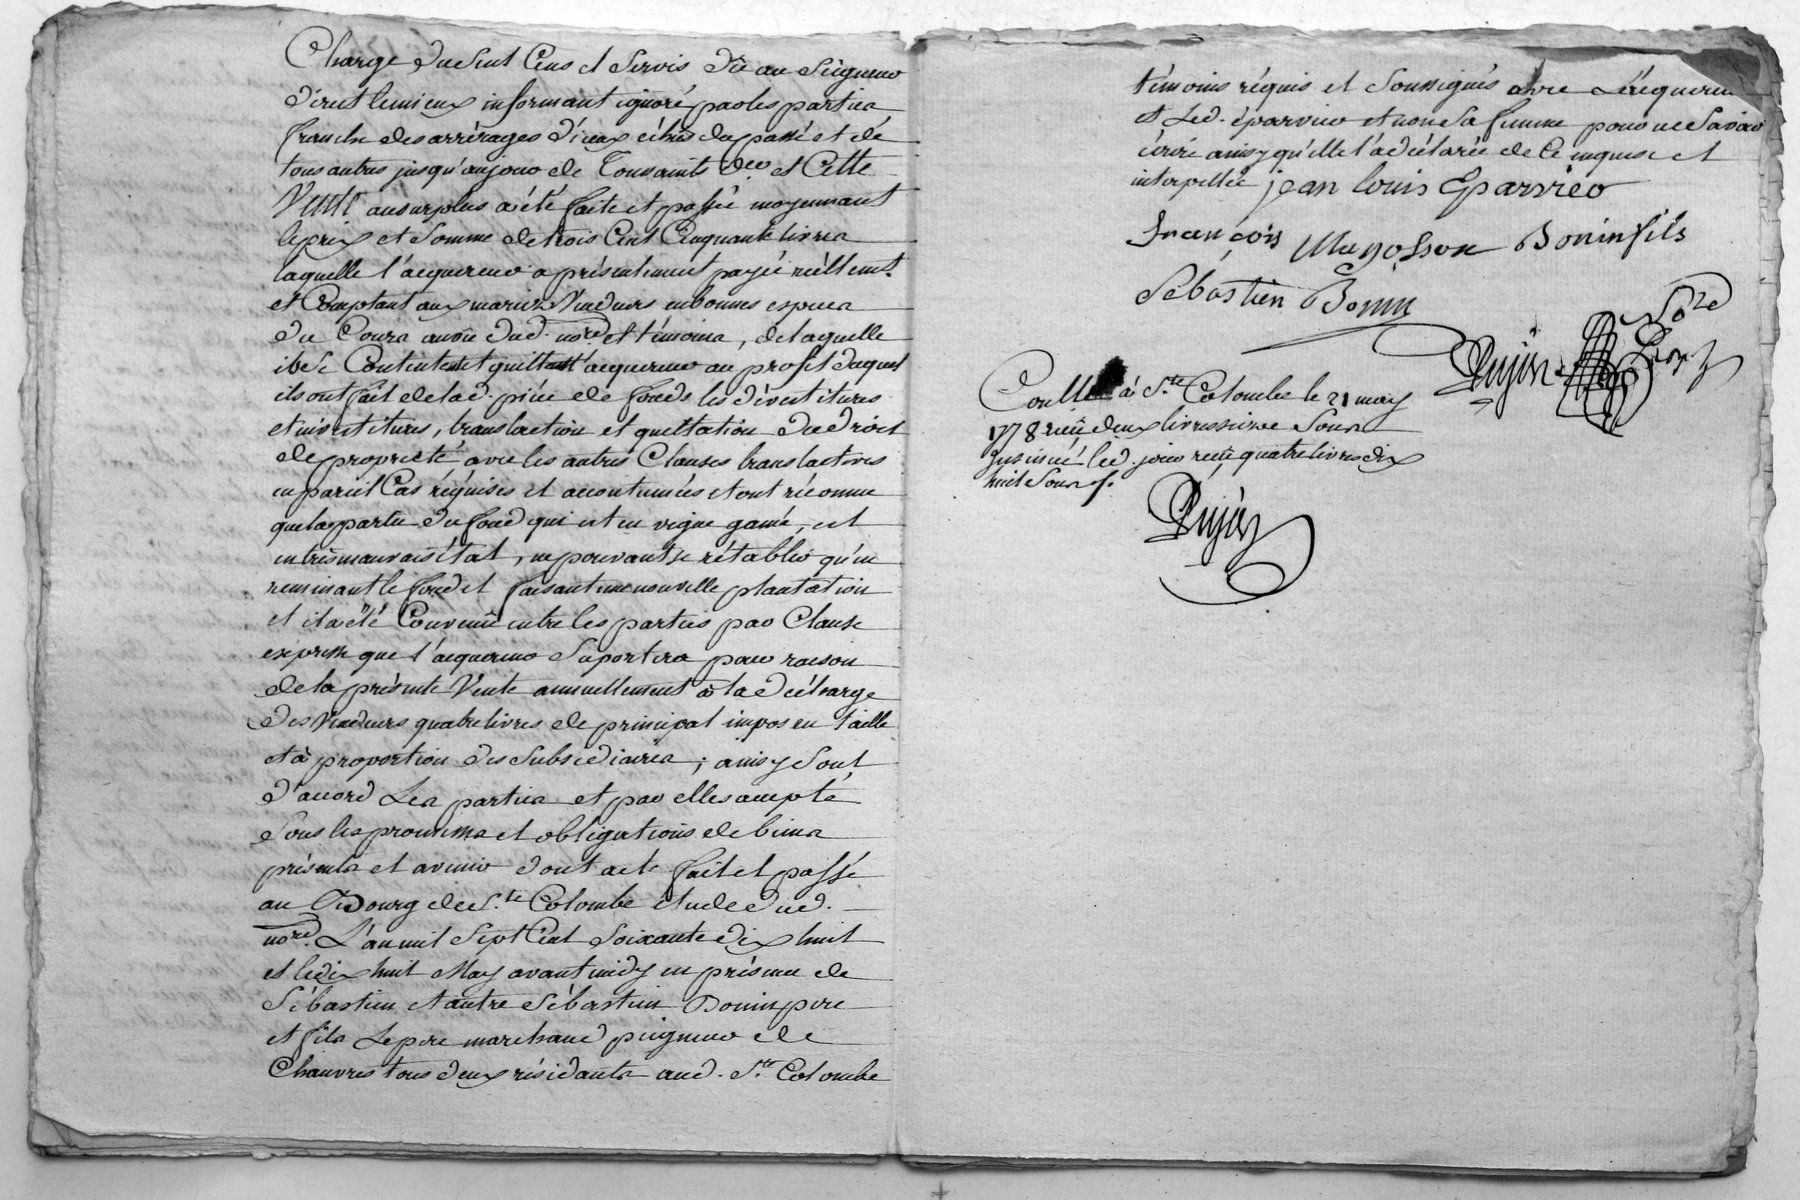 Charge du seul Cens et Servis dû au Seigneur
direct lemieux informant ignoré par les parties
franche des arrérages d'iceux échus du passé et de
tous autres jusqu'aujour de Toussaints der et Cette
Vente au surplus a été faite et passée moyennant
le prix et Somme de trois Cent Cinquante livres
laquelle l'acquereur a présentement payée réellemt.
et Comptant aux mariés Vendeurs en bonnes espèces
du Cours au vû dud. nore. et témoins, de laquelle
ils Se Contentent et quittent l'acquereur au profit duquel
ils ont fait de lad. pièce de fonds les dévestitures
et investitures, translaction et quittation du droit
de propriété avec les autres Clauses translactives
en pareil Cas réquises et accoutumées et ont réconnu
que la partie du fond qui est en vigne gamé, est
en très mauvais état, ne pouvant se rétablir qu'en
reminant le fond et faisant une nouvelle plantation
et il a été Convenu entre les parties par Clause
expresse que l'acquereur Suportera pour raison
de la présente Vente annuellement à la décharge
des Vendeurs quatre livres de principal impos en taille
et à proportion des Subsediaires; ainsy Sont
d'accord Les parties et par elles accepté
Sous les promesses et obligations de biens
présents et avenir dont acte fait et passé
au Bourg de Ste. Colombe etude dud.
nore. L'an mil Sept Cent Soixante dix huit
et le dix huit May avant midy en présence de
Sébastien et autre Sébastien Bonin père
et fils Le père marchand peigneur de
Chanvres tous deux résidants aud. Ste. Colombe
témoins réquis et Soussignés avec L'acquereur
et Led. éparvier et non Sa femme pour ne Savoir
écrire ainsy qu'elle l'a déclarée de Ce enquise et
interpellée jean louis Eparvieo
françois Magosson Boninfils
Sébastien Bonin
Nore
Pujin
Conllé à Ste. Colombe le 21 may
1778 reçû deux livres Sous
Insinué led. jour reçû quatre livres dix
huit Sous
Pujin